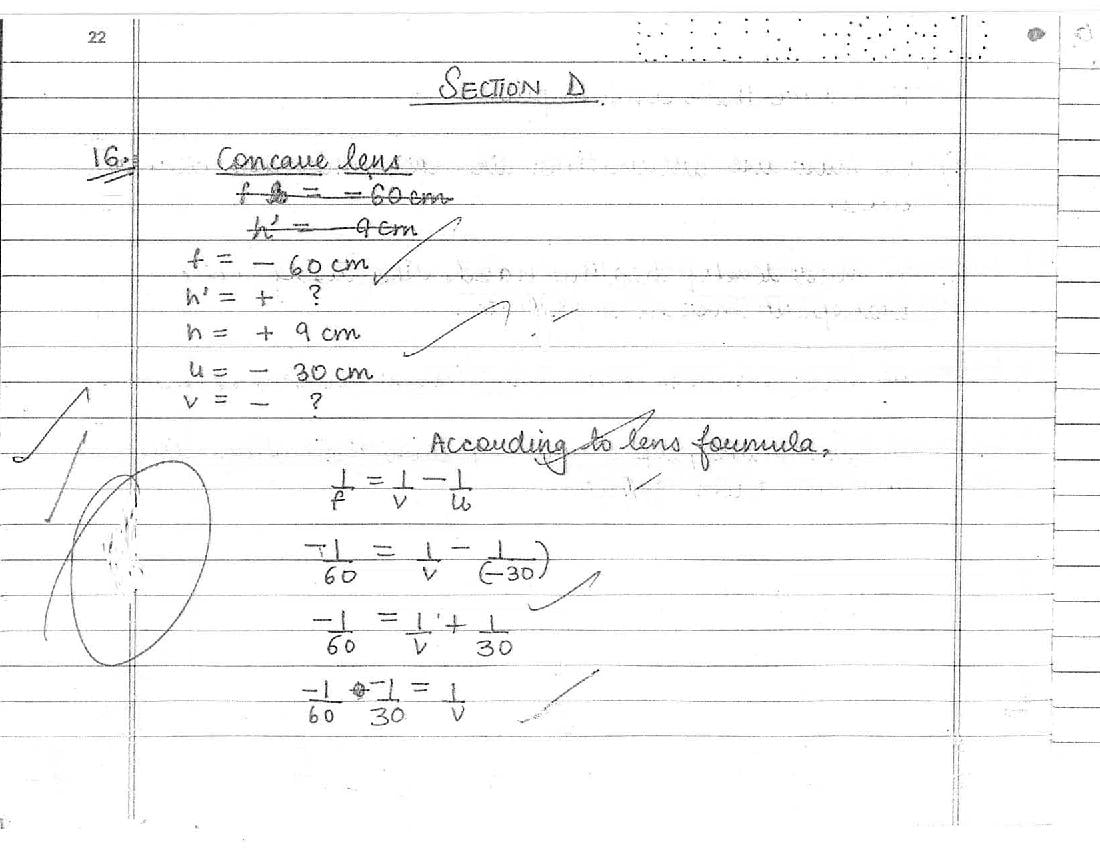 22
SECTION D
16.
Concave lens
f = - 60 cm
h' = 9 cm
f = - 60 cm
h' = + ?
h = + 9 cm
u = - 30 cm
v = - ?
According to lens formula,
1/f = 1/v - 1/u
-1/60 = 1/v - 1/(-30)
-1/60 = 1/v + 1/30
-1/60 -1/30 = 1/v